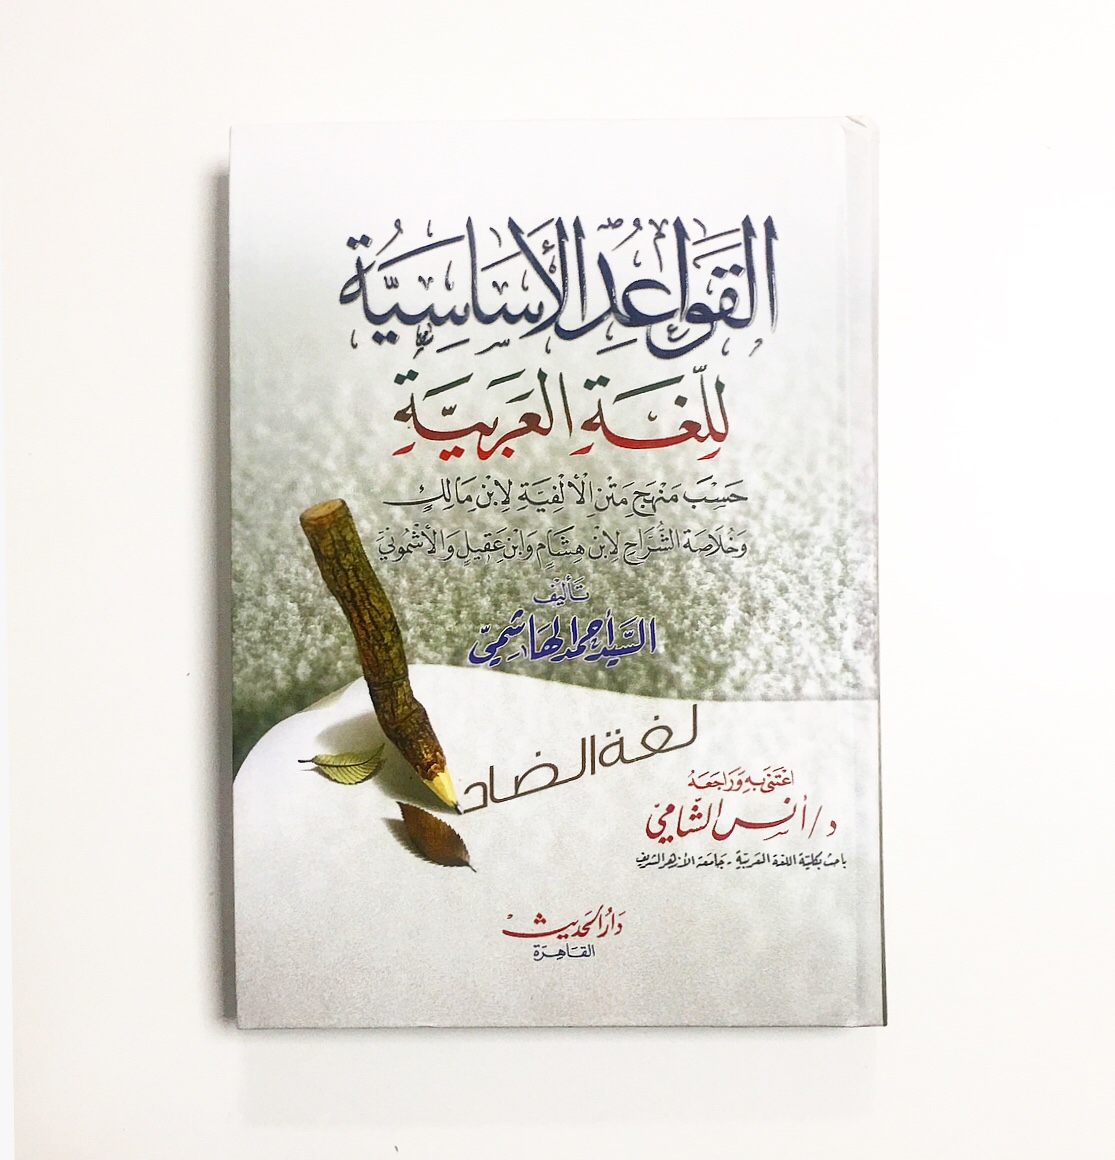 القَوَاعِدُ الأَسَاسِيَّةُ
لِلُّغَةِ العَرَبِيَّةِ
حَسَبَ مَنْهَجِ مَتْنِ الأَلْفِيَّةِ لِابْنِ مَالِكٍ
وَخُلَاصَةِ الشُّرَّاحِ لِابْنِ هِشَامٍ وَابْنِ عَقِيلٍ وَالأُشْمُونِيِّ
تَأْلِيفُ
السَّيِّد أَحْمَد الهَاشِمِيّ
لغة الضاد
اعْتَنَى بِهِ وَرَاجَعَهُ
د/ أنس الشَّامِيّ
باحث بكلية اللغة العربية - جامعة الأزهر الشريف
دَارُ الحَدِيث
القَاهِرَة